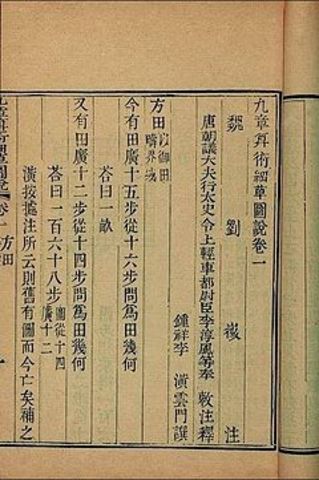 九章算術細草圖說卷一
魏 劉 徽 注
唐朝議大夫行太史令上輕車都尉臣李淳風等奉 敕注釋
鍾祥李 潢雲門譔
方田以御田疇界域
今有田廣十五步從十六步問爲田幾何
荅曰一畝
又有田廣十二步從十四步問爲田幾何
荅曰一百六十八步圖從十四廣十二
潢按據注所云則舊有圖而今亡矣補之
方田